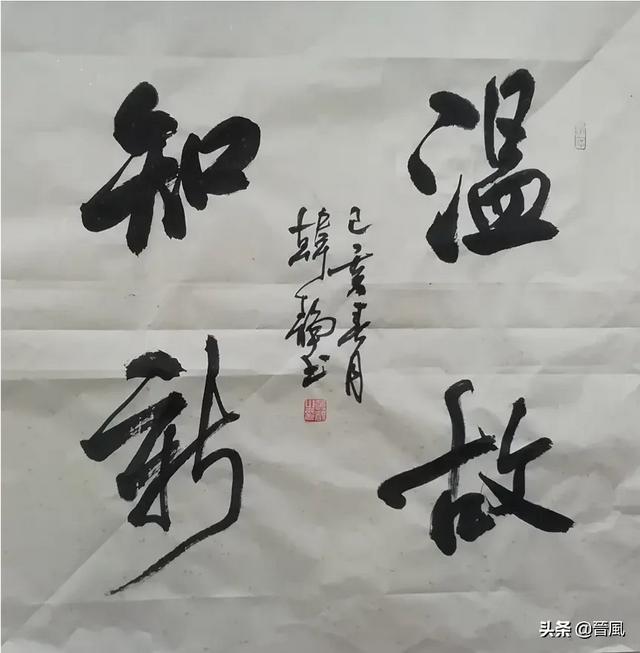 温故
知新
己亥春月
韩静书
头条 @管風